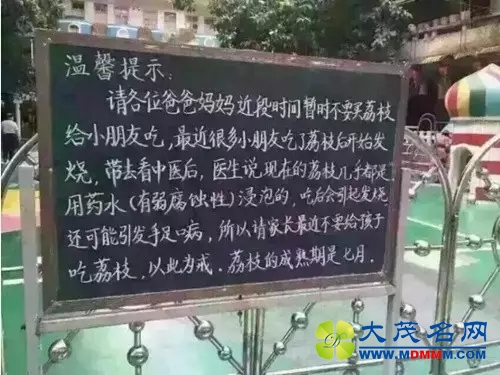 温馨提示:
请各位爸爸妈妈近段时间暂时不要买荔枝
给小朋友吃,最近很多小朋友吃了荔枝后开始发
烧,带去看中医后,医生说现在的荔枝几乎都是
用药水(有弱腐蚀性)浸泡的,吃后会引起发烧
还可能引发手足口病,所以请家长最近不要给孩子
吃荔枝,以此为戒.荔枝的成熟期是七月.
大茂名网
WWW.MDMMM.COM